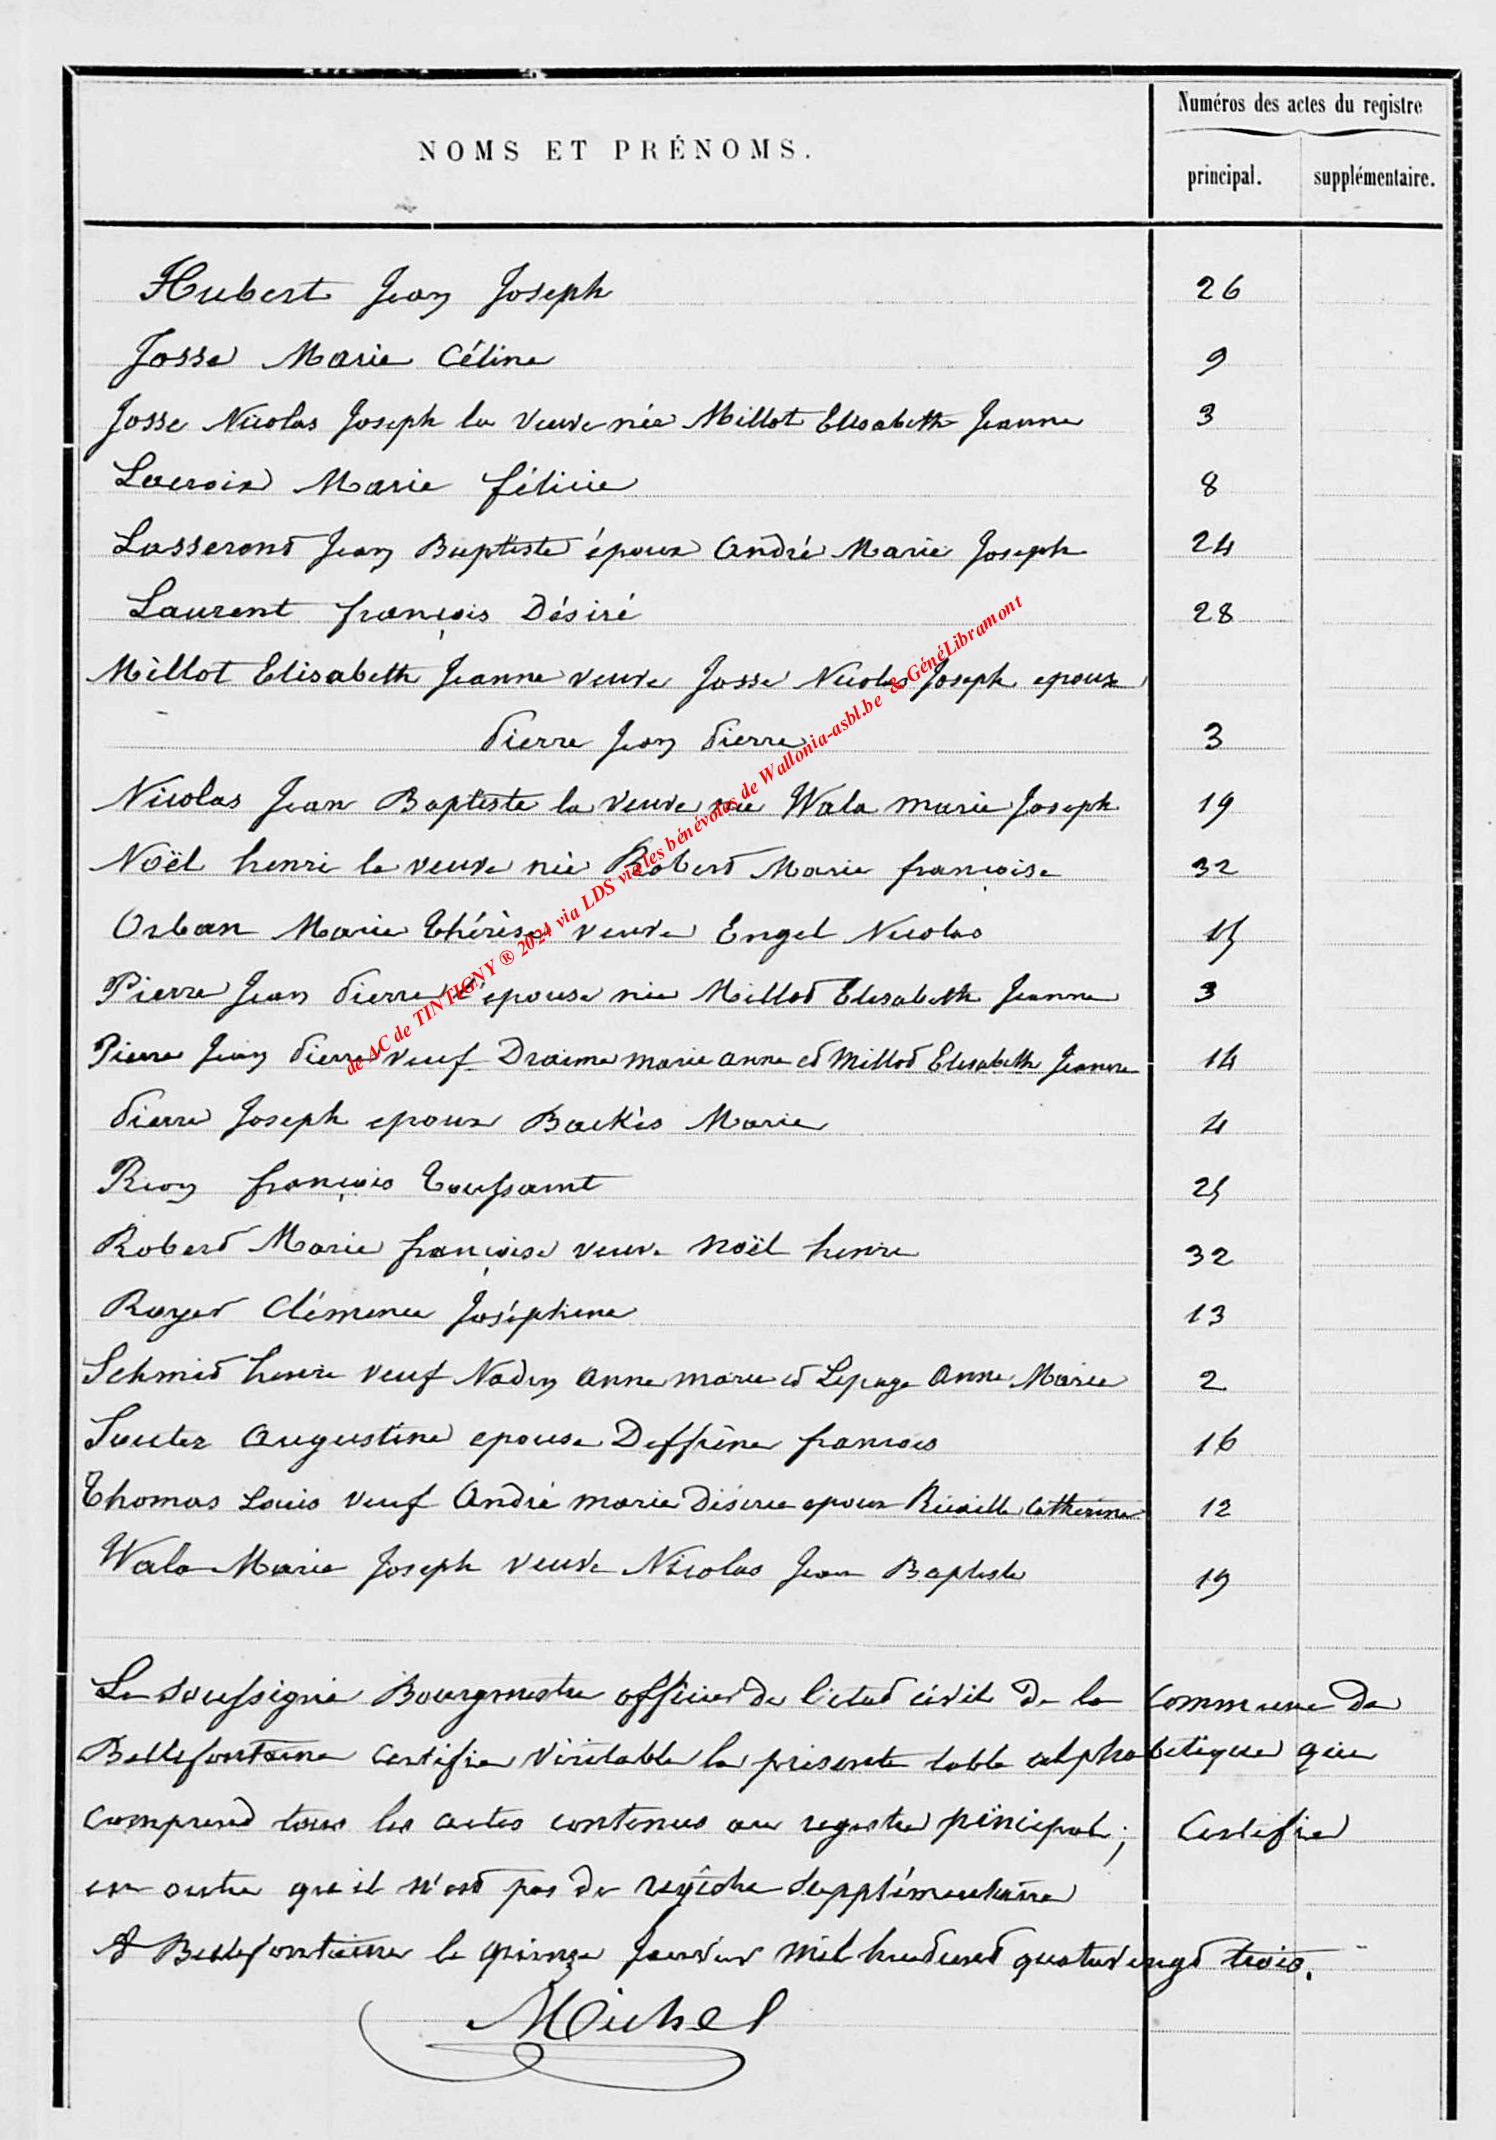 NOMS ET PRÉNOMS.
Numéros des actes du registre
principal. supplémentaire.
Hubert Jean Joseph 26
Josse Marie Céline 9
Josse Nicolas Joseph la veuve née Millot Elisabeth Jeanne 3
Lacroix Marie félicie 8
Lasserond Jean Baptiste époux André Marie Joseph 24
Laurent françois Désiré 28
Millot Elisabeth Jeanne veuve Josse Nicolas Joseph epoux
Pierre Jean Pierre 3
Nicolas Jean Baptiste la veuve née Wala marie Joseph 19
Noël henri la veuve née Robert Marie françoise 32
Orban Marie Thérèse veuve Engel Nicolas 15
Pierre Jean Pierre l'epouse née Millod Elisabeth Jeanne 3
Pierre Jean Pierre veuf Draime marie anne et Millod Elisabeth Jeanne 14
Pierre Joseph epoux Backès Marie 4
Rion françois Toussaint 25
Robert Marie françoise veuve Noël henri 32
Royer Clémence Joséphine 13
Schmid henri veuf Nadin anne marie et Lepage Anne Marie 2
Suuter Augustine epouse Deffrêne francois 16
Thomas Louis veuf André marie Désirée epoux Ricaille Catherine 12
Wala Marie Joseph veuve Nicolas Jean Baptiste 19
Le soussigné Bourgmestre officier de l'etat civil De la commune de
Bellefontaine certifie véritable la présente table alphabetique qui
comprend tous les actes contenus au registre principal; Certifie
en outre qu'il n'est pas de registre supplémentaire
A Bellefontaine le quinze Janvier mil huit cent quatre vingt trois.
Michel
de AC de TINTIGNY ® 2024 via LDS via les bénévoles de Wallonia-asbl.be & GénéLibramont